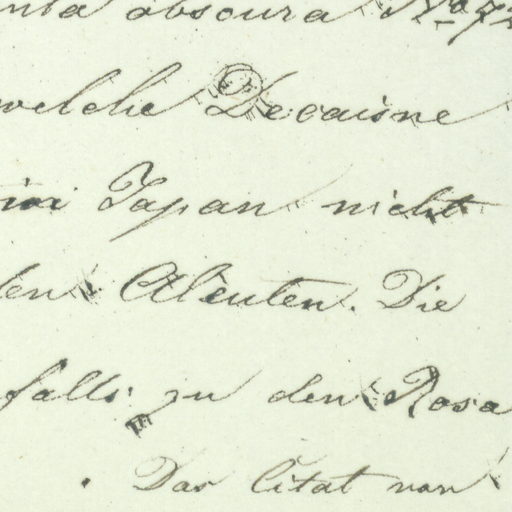 obscura No 72
welche Decaisne
in Japan nicht
den Aleuten. Die
falls zu den Rosa
. Das Citat von